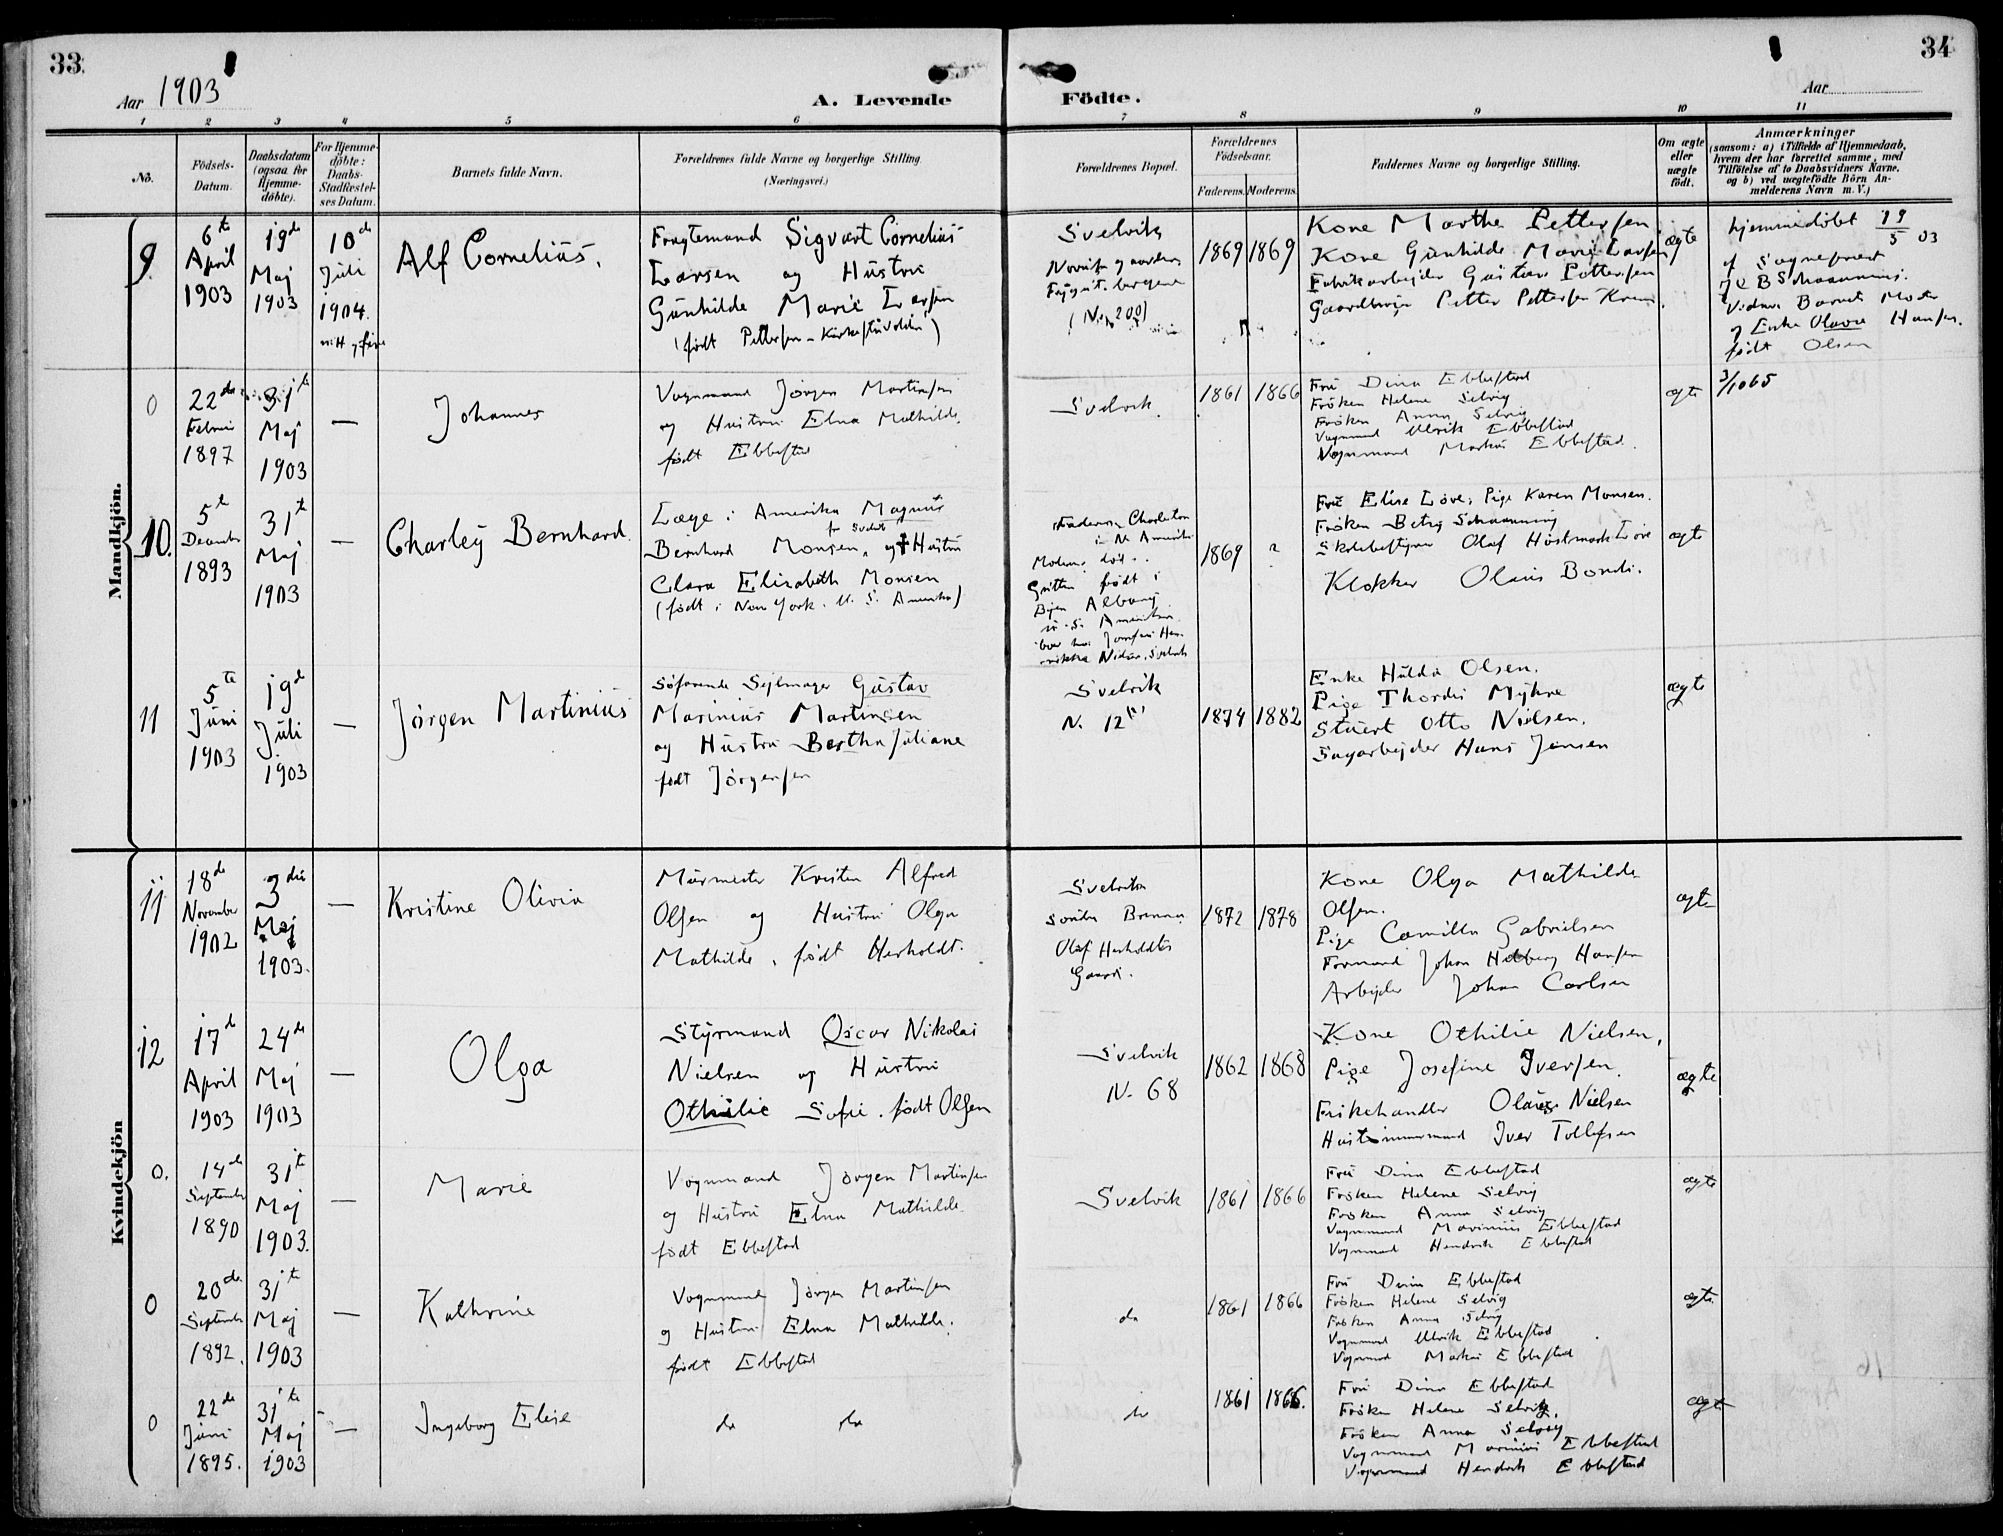 33
34
Aar 1903
A. Levende
Födte.
Aar
1 2 3 4 5 6 7 8 9 10 11
No.
Födsels-
Datum.
Daabsdatum
(ogsaa for
Hjemme-
døbte).
For Hjemme-
døbte:
Daabs-
Stadfestel-
ses Datum.
Barnets fulde Navn.
Forældrenes fulde Navne og borgerlige Stilling.
(Næringsvei.)
Forældrenes Bopæl.
Forældrenes
Födselsaar.
Faderens. Moderens.
Faddernes Navne og borgerlige Stilling.
Om ægte
eller
uægte
født.
Anmærkninger
(saasom: a) i Tilfælde af Hjemmedaab,
hvem der har forrettet samme, med
Tilföielse af to Daabsvidners Navne,
og b) ved uægtefödte Börn An-
melderens Navn m. V.)
Mandkjön.
9.
6te
April
1903
19de
Maj
1903
10de
Juli
1904.
Alf Cornelius.
Fragtemand Sigvart Cornelius
Larsen og Hustru
Gunhilde Marie Larsen
(født Pettersen
Svelvik
(No 200)
1869 1869
Kone Marthe Pettersen
Kone Gunhilde Marie Larsen
Fabrikarbejder Gustav Pettersen
Gaardbruger Petter Pettersen
ægte
hjemmedøbt 19/5 03
af Sogneprest
Schaanning.
Vidner Barnets Moder
og Enke Olava Hansen.
født Olsen
0
22de
Februar
1897
31te
Maj
1903
—
Johannes
Vognmand Jörgen Martinsen
og Hustru Elna Mathilde,
født Ebbestad
Svelvik.
1861 1866
Fru Dina Ebbestad
Fröken Helene Selvig
Fröken Anna Selvig
Vognmand Ulrik Ebbestad
Vognmand Markus Ebbestad.
ægte
10.
5te
December
1893
31te
Maj
1903
—
Charley Bernhard.
Læge i Amerika Magnus
Bernhard Monsen, og † Hustru
Clara Elisabeth Monsen
(født i New York. U. S. Amerika)
Faderen Charleston
i N. Amerika
Moderen død.
født i
Byen Albany
1869 ?
Fru Elise Løve; Pige Karen Monsen.
Fröken Betzy Schaanning
Skolebestyrer Olaf Løve
Klokker Olaus Bondi.
ægte
11
5te
Juni
1903
19de
Juli
1903
—
Jörgen Martinius
Söfarende Sejlmager Gustav
Marinius Martinsen
og Hustru Bertha Juliane
født Jörgensen
Svelvik
N. 12
1874 1882
Enke Hulda Olsen.
Pige Thordis Myhre
Stuert Otto Nielsen.
Sagarbejder Hans Jensen
ægte
Kvindekjön
11
18de
November
1902
3die
Maj
1903.
—
Kristine Olivia
Murmester Kristen Alfred
Olsen og Hustru Olga
Mathilde, født Herholdt.
Svelvik
Olaf Herholdts
Gaard.
1872 1878
Kone Olga Mathilde
Olsen.
Pige Camilla Gabrielsen
Formand Johan Hansen
Arbejder Johan Carlsen
ægte
12
17de
April
1903
24de
Maj
1903
—
Olga
Styrmand Oscar Nikolai
Nielsen og Hustru
Othilie Sofie. født Olsen
Svelvik
N. 68
1862 1868
Kone Othilie Nielsen,
Pige Josefine Iversen.
Olaus Nielsen
Hustömmermand Iver Tollefsen
ægte
0.
14de
September
1890
31te
Maj
1903.
—
Marie
Vognmand Jörgen Martinsen
og Hustru Elna Mathilde
født Ebbestad
Svelvik
1861 1866
Fru Dina Ebbestad
Fröken Helene Selvig
Fröken Anna Selvig
Vognmand Marinius Ebbestad
Vognmand Hendrik Ebbestad
ægte
0
20de
September
1892.
31te
Maj
1903
—
Kathrine
Vognmand Jörgen Martinsen
og Hustru Elna Mathilde.
født Ebbestad
do
1861 1866
Fru Dina Ebbestad
Fröken Helene Selvig
Fröken Anna Selvig
Vognmand Ulrik Ebbestad
Vognmand Markus Ebbestad
ægte.
0
22de
Juni
1895.
31te
Maj
1903
—
Ingeborg Elise
do do
do
1861 1866.
Fru Dina Ebbestad
Fröken Helene Selvig.
Fröken Anna Selvig
Vognmand Marinius Ebbestad
Vognmand Hendrik Ebbestad
ægte